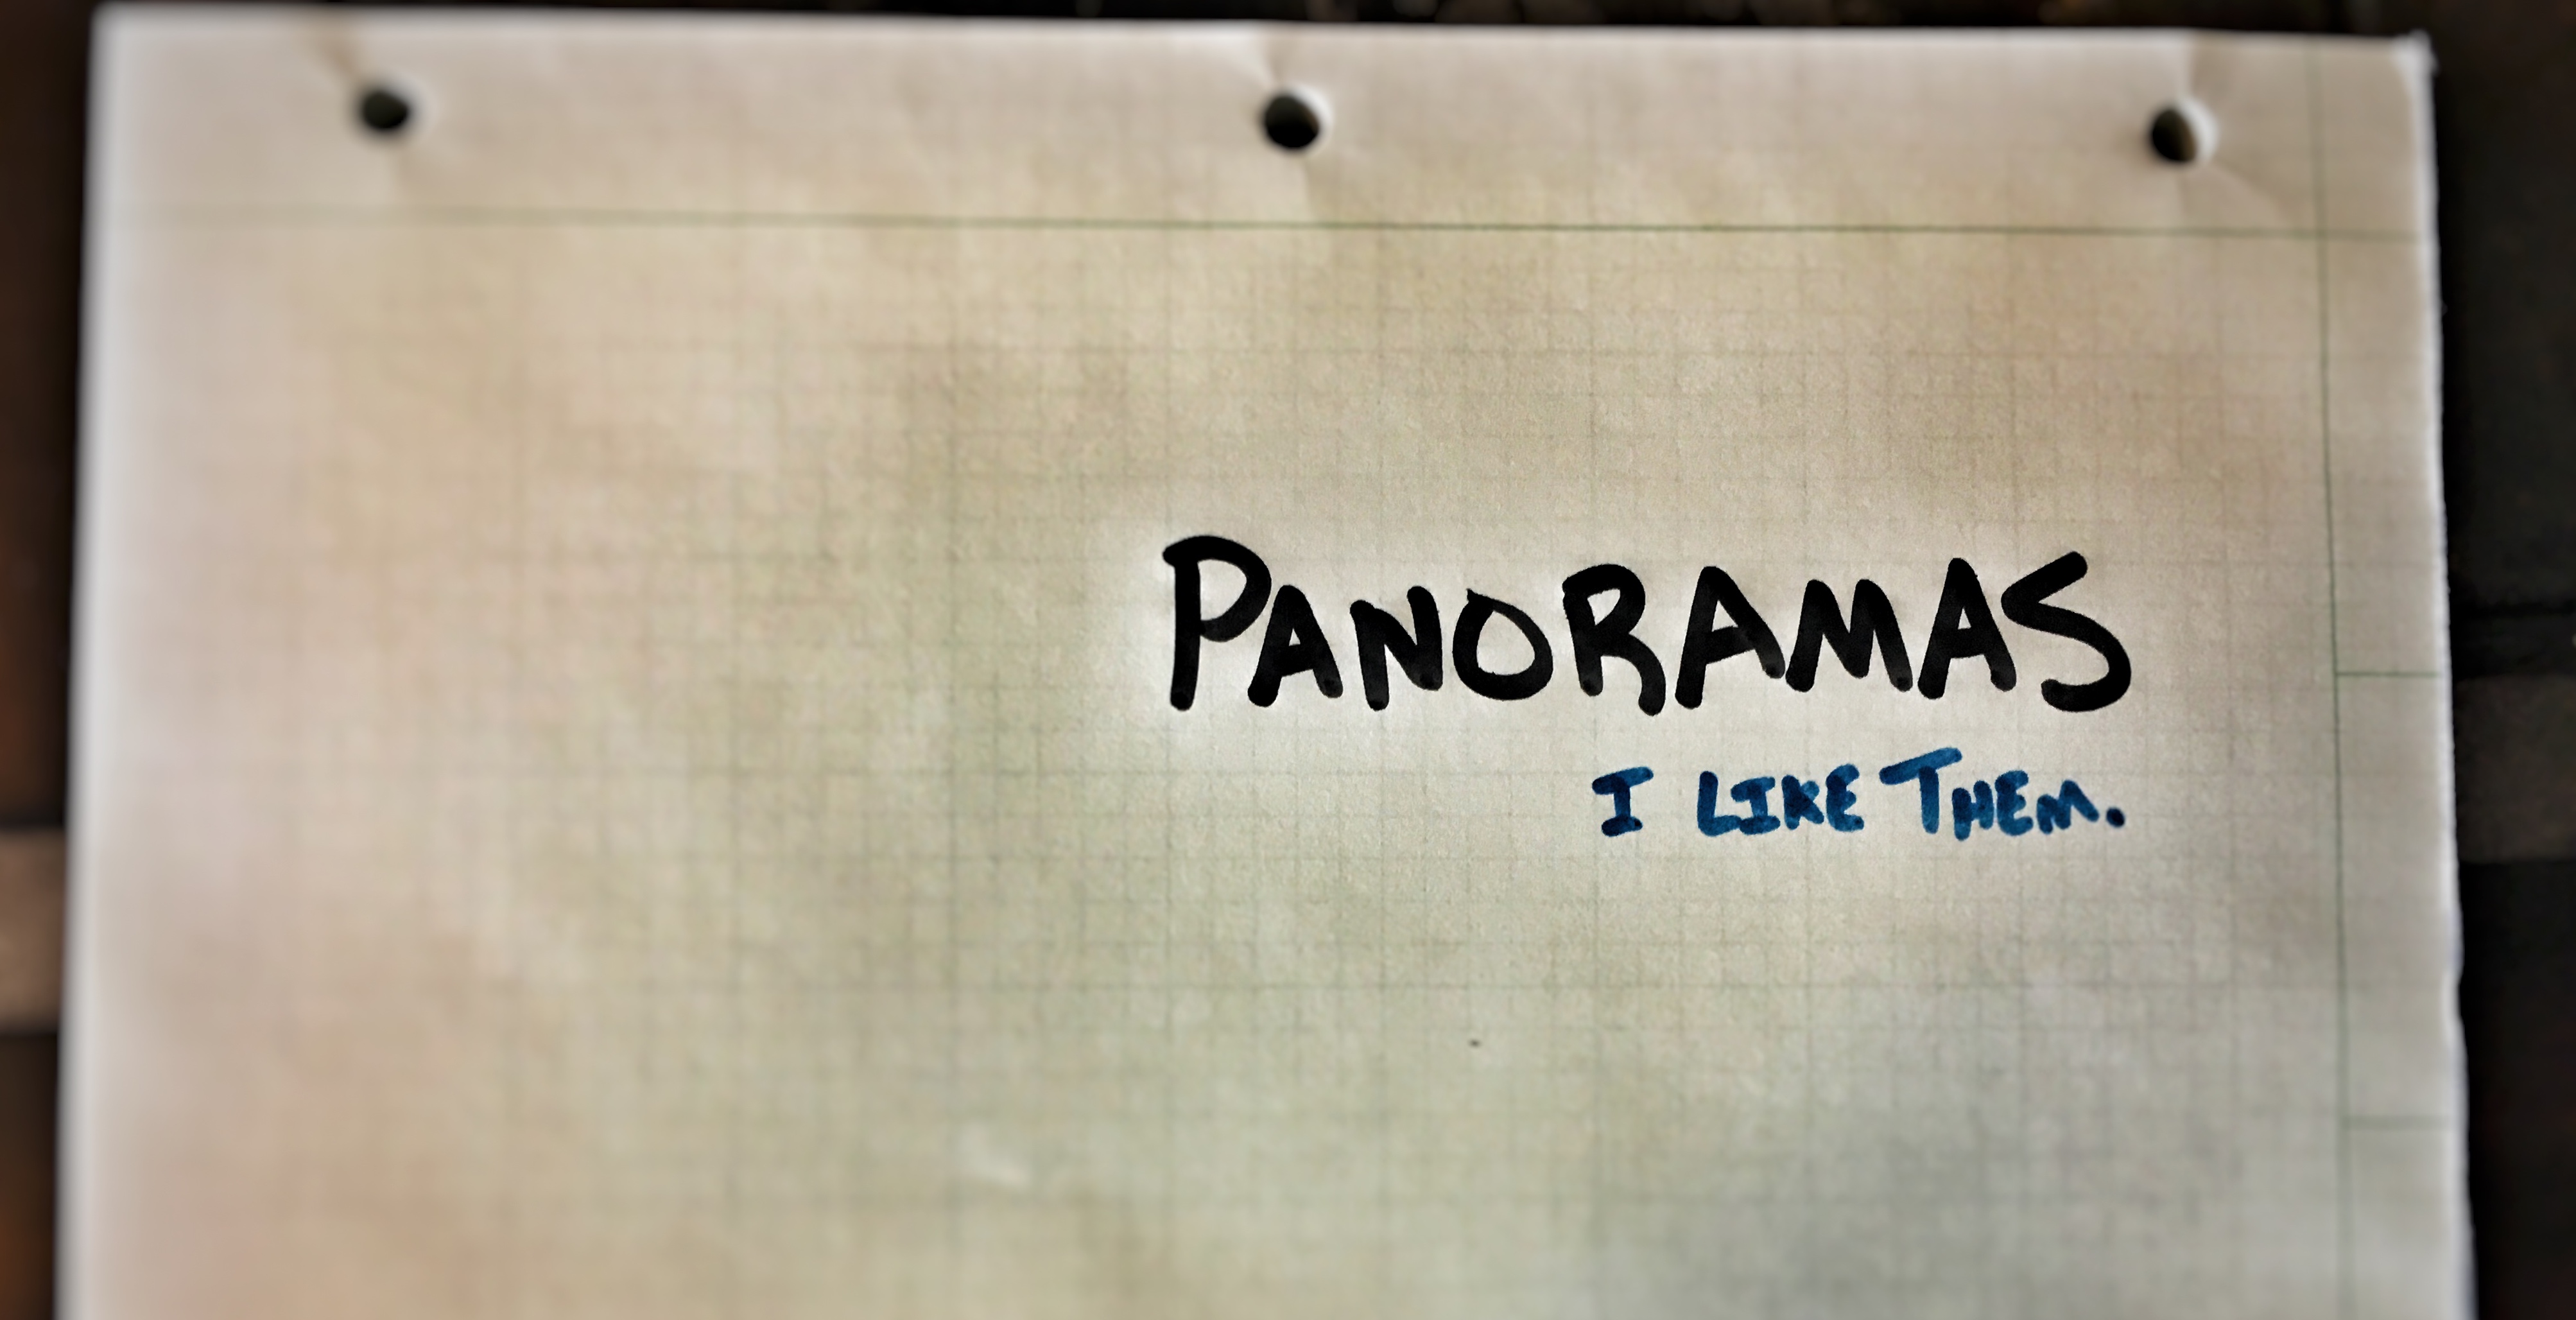 PANORAMAS
I LIKE THEM.